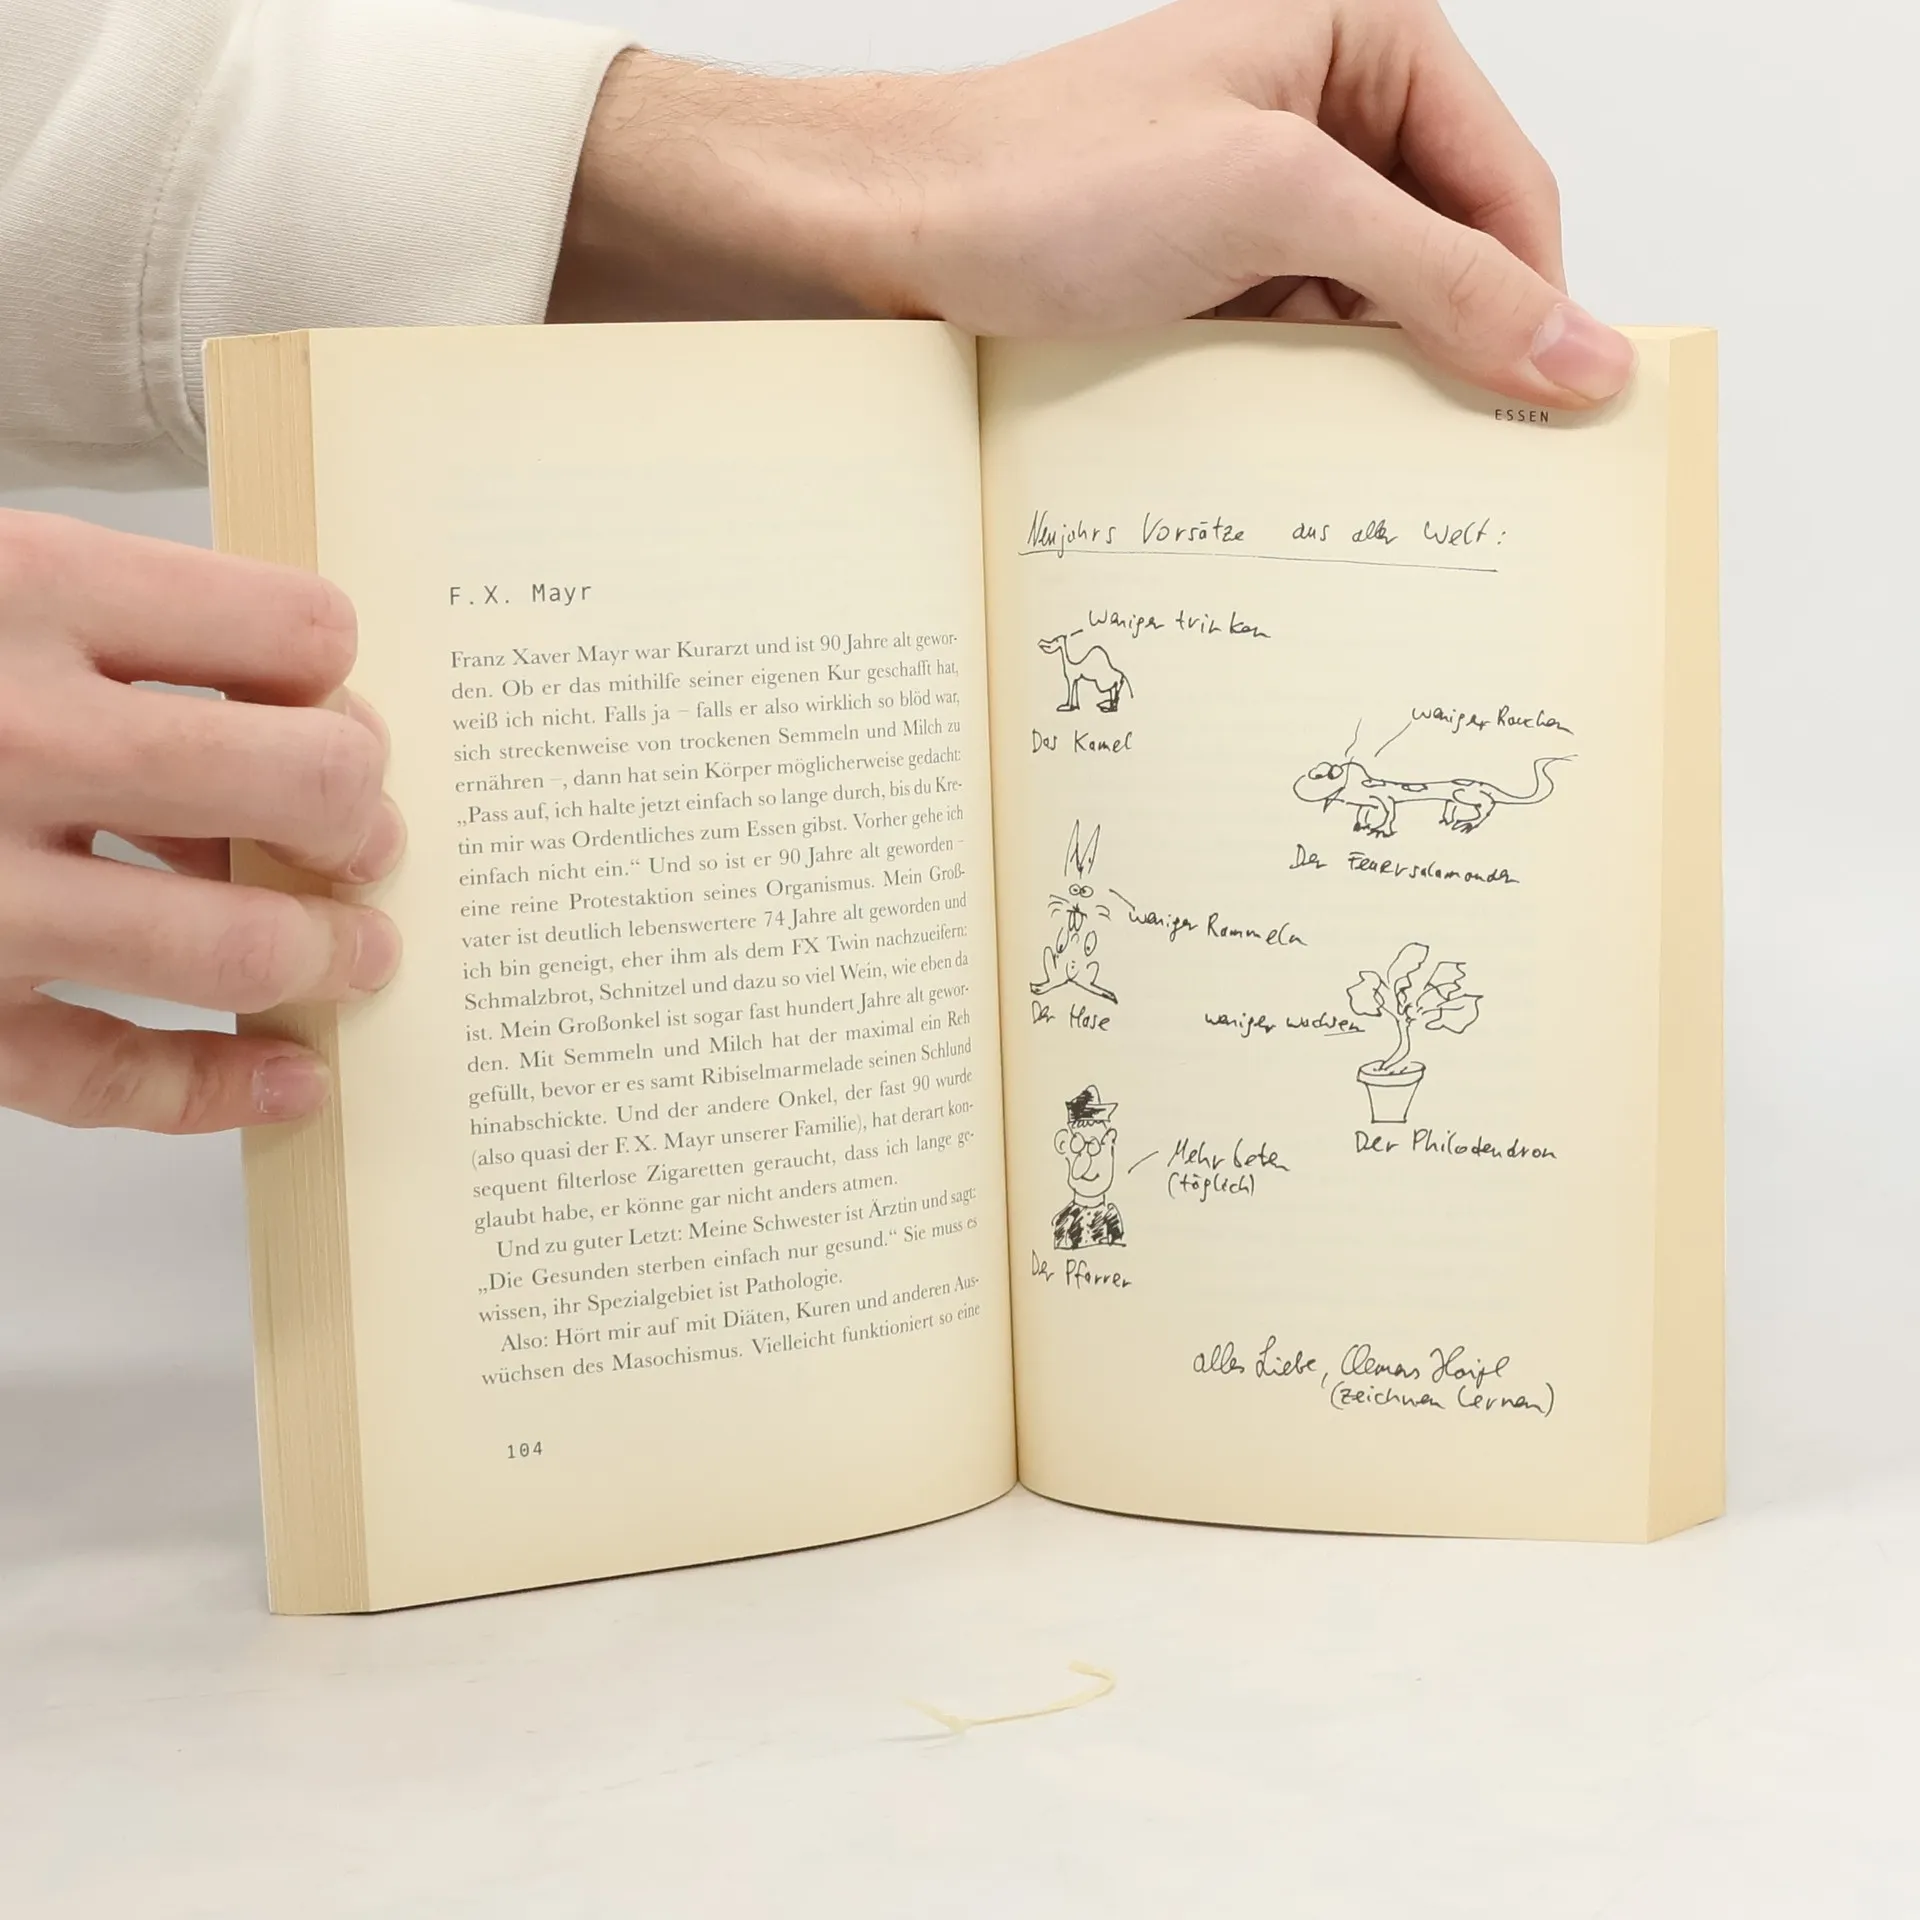 F. X. Mayr
Franz Xaver Mayr war Kurarzt und ist 90 Jahre alt gewor-
den. Ob er das mithilfe seiner eigenen Kur geschafft hat,
weiß ich nicht. Falls ja – falls er also wirklich so blöd war,
sich streckenweise von trockenen Semmeln und Milch zu
ernähren –, dann hat sein Körper möglicherweise gedacht:
„Pass auf, ich halte jetzt einfach so lange durch, bis du Kre-
tin mir was Ordentliches zum Essen gibst. Vorher gehe ich
einfach nicht ein.“ Und so ist er 90 Jahre alt geworden –
eine reine Protestaktion seines Organismus. Mein Groß-
vater ist deutlich lebenswertere 74 Jahre alt geworden und
ich bin geneigt, eher ihm als dem FX Twin nachzueifern:
Schmalzbrot, Schnitzel und dazu so viel Wein, wie eben da
ist. Mein Großonkel ist sogar fast hundert Jahre alt gewor-
den. Mit Semmeln und Milch hat der maximal ein Reh
gefüllt, bevor er es samt Ribiselmarmelade seinen Schlund
hinabschickte. Und der andere Onkel, der fast 90 wurde
(also quasi der F. X. Mayr unserer Familie), hat derart kon-
sequent filterlose Zigaretten geraucht, dass ich lange ge-
glaubt habe, er könne gar nicht anders atmen.
Und zu guter Letzt: Meine Schwester ist Ärztin und sagt:
„Die Gesunden sterben einfach nur gesund.“ Sie muss es
wissen, ihr Spezialgebiet ist Pathologie.
Also: Hört mir auf mit Diäten, Kuren und anderen Aus-
wüchsen des Masochismus. Vielleicht funktioniert so eine
104
ESSEN
Neujahrs Vorsätze aus aller Welt:
weniger trinken
Das Kamel
weniger Rauchen
Der Feuersalamander
weniger Rammeln
Der Hase
weniger wachsen
Der Philodendron
Mehr beten
(täglich)
Der Pfarrer
alles Liebe, Clemens Haipl
(zeichnen lernen)